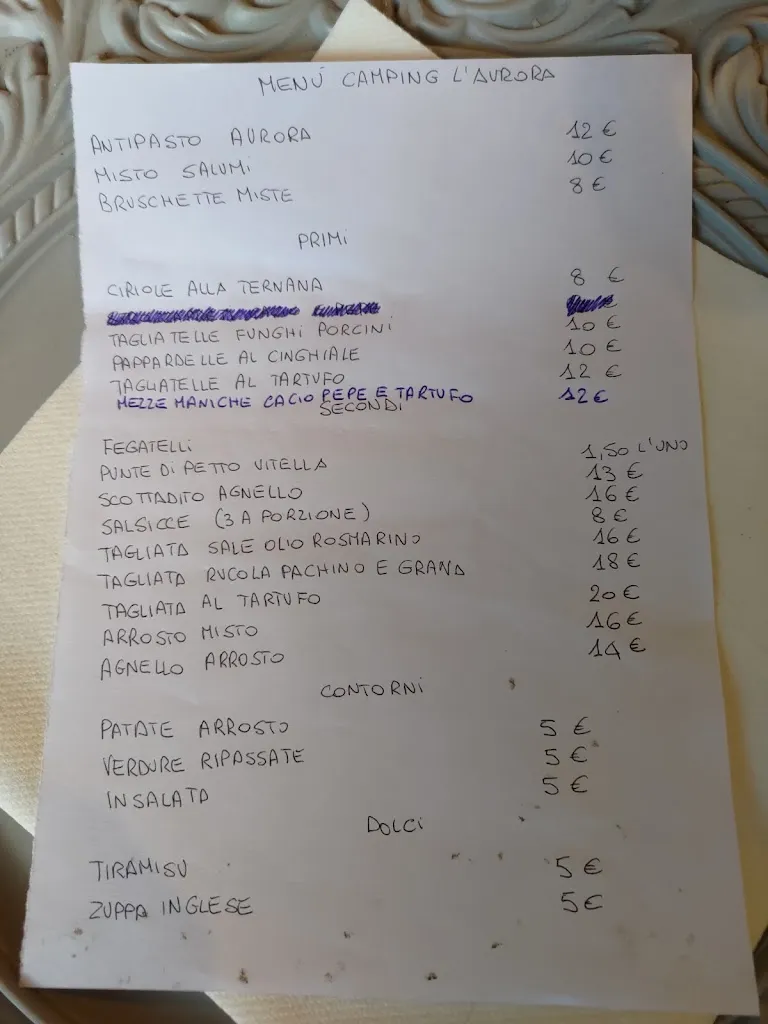 MENÚ CAMPING L'AURORA
ANTIPASTO AURORA 12 €
MISTO SALUMI 10 €
BRUSCHETTE MISTE 8 €
PRIMI
CIRIOLE ALLA TERNANA 8 €
TAGLIATELLE FUNGHI PORCINI 10 €
PAPPARDELLE AL CINGHIALE 10 €
TAGLIATELLE AL TARTUFO 12 €
MEZZE MANICHE CACIO PEPE E TARTUFO 12 €
SECONDI
FEGATELLI 1,50 L'UNO
PUNTE DI PETTO VITELLA 13 €
SCOTTADITO AGNELLO 16 €
SALSICCE (3 A PORZIONE) 8 €
TAGLIATA SALE OLIO ROSMARINO 16 €
TAGLIATA RUCOLA PACHINO E GRANA 18 €
TAGLIATA AL TARTUFO 20 €
ARROSTO MISTO 16 €
AGNELLO ARROSTO 14 €
CONTORNI
PATATE ARROSTO 5 €
VERDURE RIPASSATE 5 €
INSALATA 5 €
DOLCI
TIRAMISU 5 €
ZUPPA INGLESE 5 €